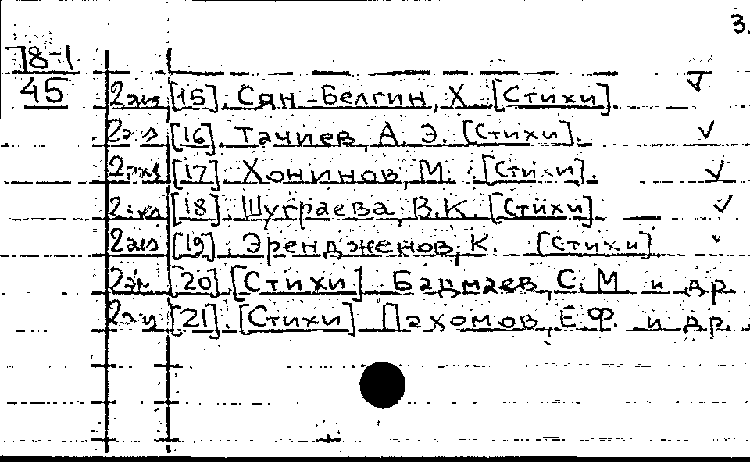 3.
78-1
45
2 экз [15]. Сян-Белгин, Х. [Стихи].
2 экз [16]. Тачиев, А. Э. [Стихи].
2 экз [17]. Хонинов, М. [Стихи].
2 экз [18]. Шуграева, В.К. [Стихи].
2 экз [19]. Эрендженов, К. [Стихи]
2 экз [20]. [Стихи] Бадмаев, С. М. и др.
2 экз [21]. [Стихи] Пахомов, Е.Ф. и др.